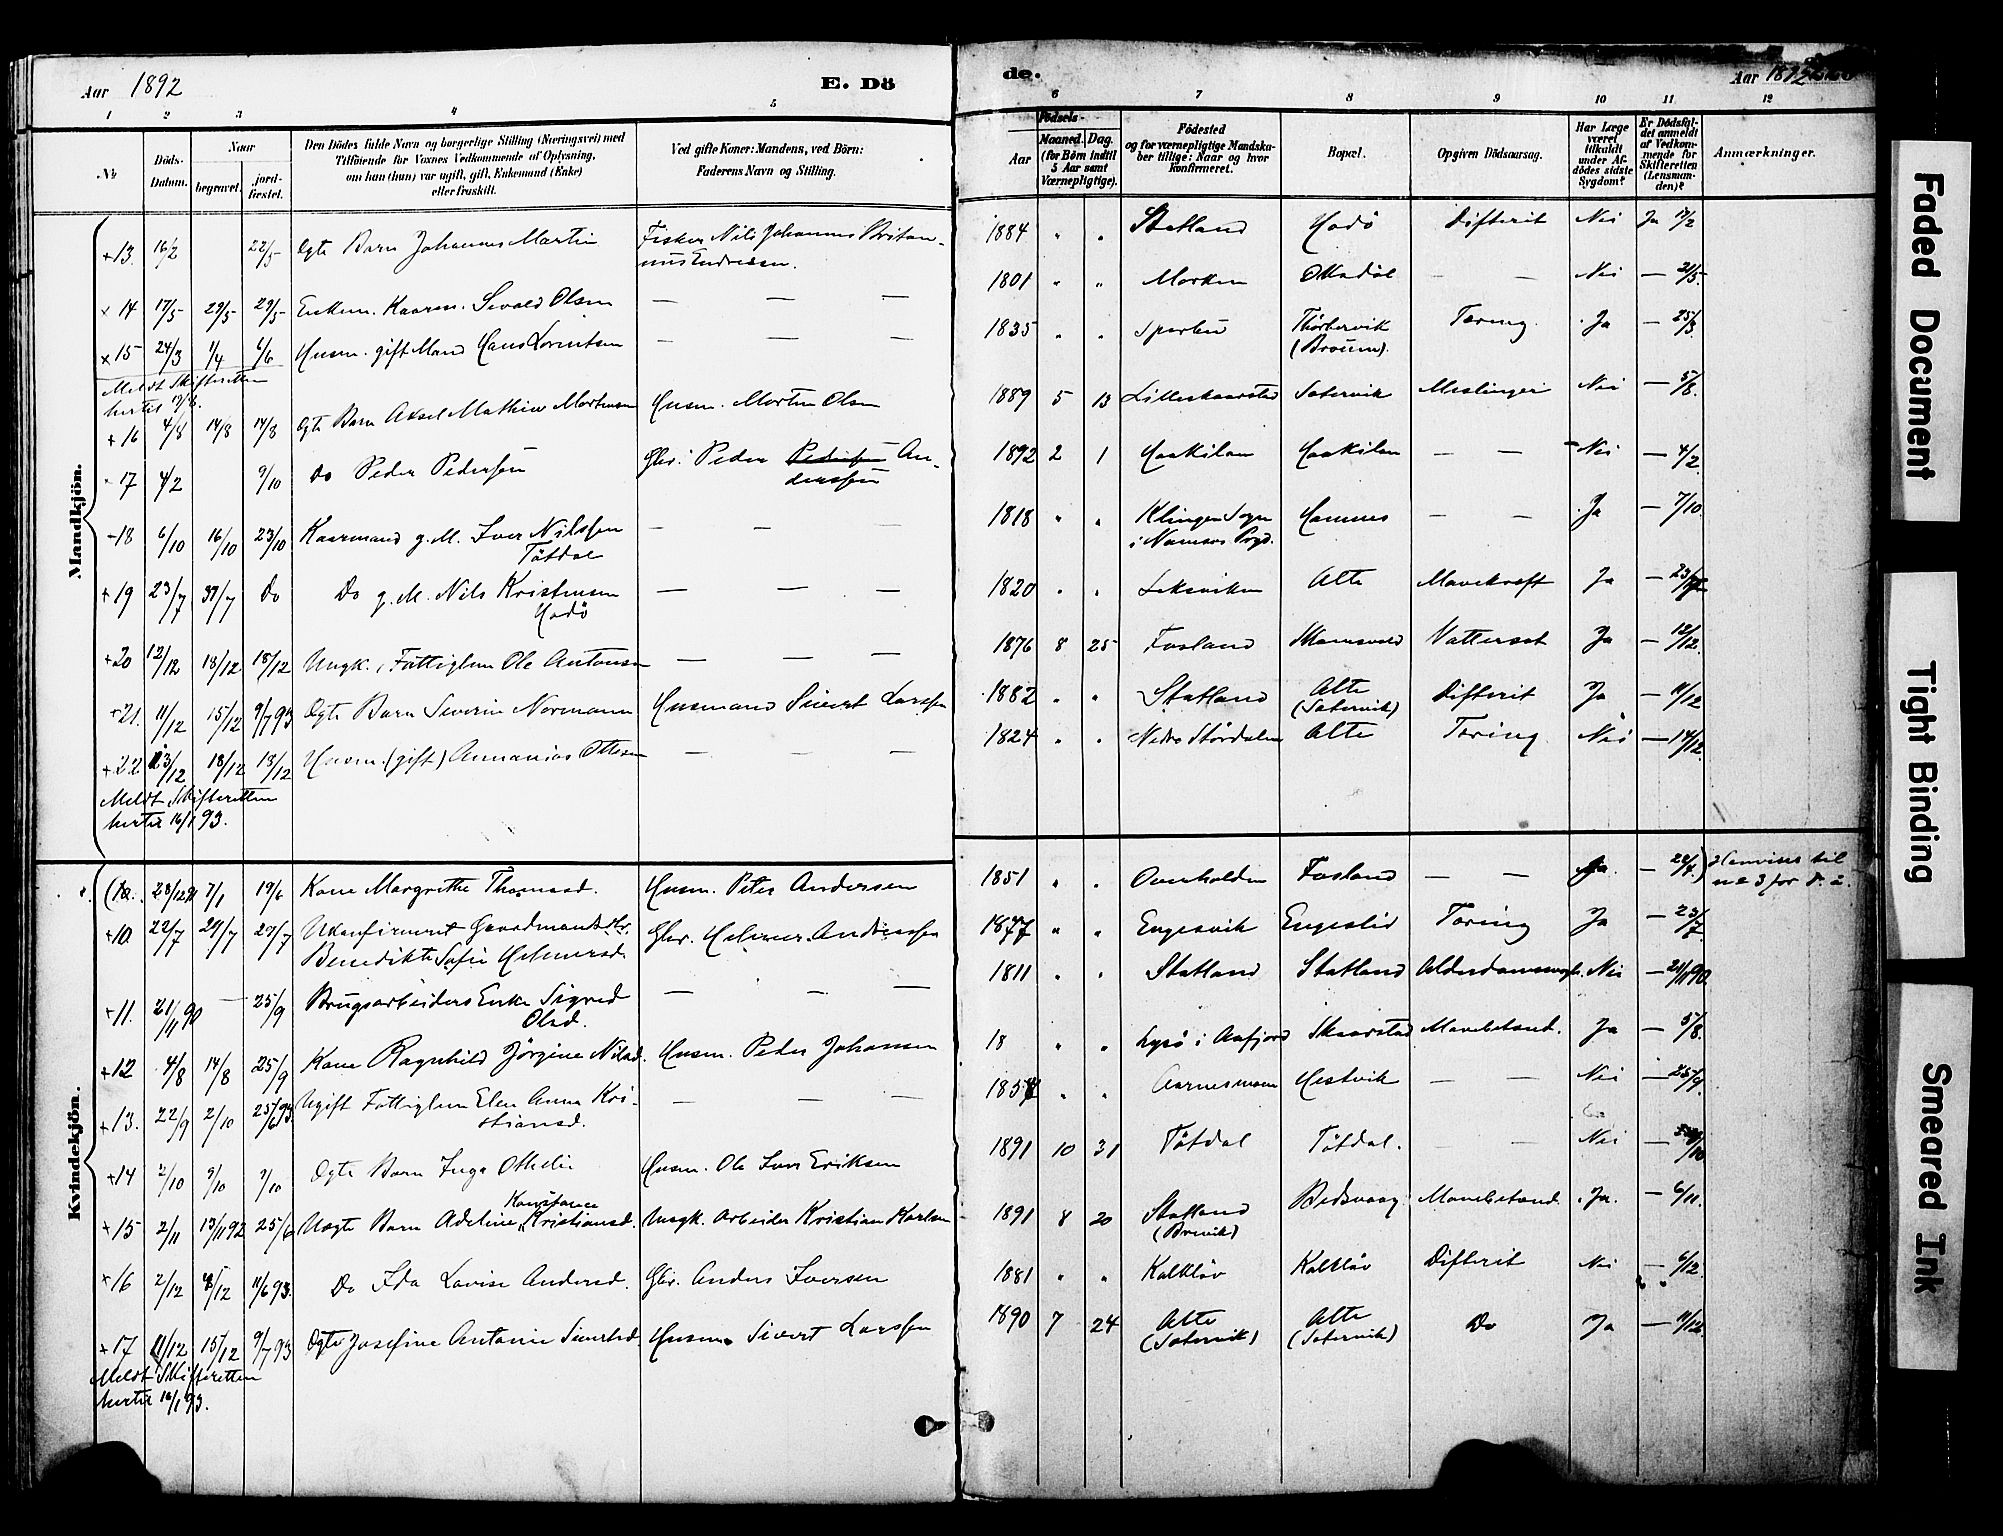 Aar 1892
E. Dö
1 2 3 4 5
No
Döds-
Datum.
Naar
begravet.
jord-
fæstet.
Den Dödes fulde Navn og borgerlige Stilling (Næringsvei) med
Tilföiende for Voxnes Vedkommende af Oplysning,
om han (hun) var ugift, gift, Enkemand (Enke)
eller fraskilt.
Ved gifte Koner: Mandens, ved Börn:
Faderens Navn og Stilling.
Mandkjön.
+13. 16/2 22/5 Ægte Barn Johannes Martin Fisker Nils Johannes
Endresen.
×14 17/5 29/5 29/5 Enkem. Kaarm. Sivald Olsen — — —
×15 24/3 1/4 6/6 Husm. gift Mand Hans Lorentsen — — —
Meldt Skifteretten
hertil
+16 4/8 14/8 14/8 Ægte Barn Axel Mathias Mortensen Husm. Morten Olsen
17 4/2 9/10 Do Peder Pedersen Gbr. Peder Pedersen An-
derssen
18 6/10 16/10 23/10 Kaarmand g. M. Iver Nilssen — — —
Tötdal
+19 23/7 31/7 Do Do g. M. Nils Kristensen — — —
Hodö
+20 12/12 18/12 18/12 Ungk., Fattiglem Ole Antonsen — — —
+21. 11/12 15/12 9/7 93 Ægte Barn Severin Normann Husmand Sivert Larssen
+22 13/12 18/12 13/12 Husm. (gift) Annanias Ottesen — — —
Meldt Skifteretten
hertil 16/1 93.
Kvindekjön.
7/1 19/6 Kone Margrethe Thomasd. Husm. Peter Andersen
+10 22/7 29/7 29/7 Ukonfirmeret Gaardmandsdtr. Gbr. Helmer Anderssen
Benedikte Sofie Helmersd.
+11. 21/11 90 — 25/9 Brugsarbeiders Enke Sigrid — — —
Olsd.
+12 4/8 14/8 25/9 Kone Ragnhild Jörgine Nilsd. Husm. Peder Johansen
+13. 22/9 2/10 25/6 93 Ugift Fattiglem Elen Anna Kri- — — —
stiansd.
+14 2/10 9/10 9/10 Ægte Barn Inga Othelie Husm. Ole Iver Eriksen
Konstance
+15 2/11 13/11 92 25/6 Uægte Barn Adeline Kristiansd. Ungk. Arbeider Kristian Karlsen
+16 2/12 8/12 11/6 93. Do Ida Lovise Andersd. Gbr. Anders Iversen
+17 11/12 15/12 9/7 93 Ægte Josefine Antonie Sivertsd. Husm. Sivert Larssen
Meldt Skifteretten
hertil 16/1 93.
de.
Aar 1892
6 7 8 9 10 11 12
Födsels-
Aar
Maaned. Dag.
(for Börn indtil
5 Aar samt
Værnepligtige).
Födested
og for værnepligtige Mandska-
ber tillige: Naar og hvor
konfirmeret.
Bopæl.
Opgiven Dödsaarsag.
Har Læge
været
tilkaldt
under Af-
dödes sidste
Sygdom?
Er Dödsfal-
det anmeldt
af Vedkom-
mende for
Skifteretten
(Lensman-
den)?
Anmærkninger.
1884 " " Statland Hodö Difterit Nei Ja 17/2
1801 " " Morken Ottadöl — — Nei — 21/5.
1835 " " Sparbu Thorbervik Tæring. Ja — 25/3.
1889 5 13 Lilleskaarstad Satervik Meslinger Nei — 5/8.
1892 2 1 Haakilen Haakilen — — Nei — 4/2.
1818 " " Klingen Sogn Hamnes — — Ja — 7/10.
i Namsos Prgd.
1820 " " Leksviken Alte Mavekræft Ja — 23/7
1876 8 25 Fosland Vattersot Ja — 12/12.
1882 " " Statland Alte Difterit Ja — 11/12
(Satervik)
1824 " " Nedre Stördalen Alte Tæring. Nei — 14/12.
1851 " " Overhalden Fosland — — Ja. — Henvises til
no 3 for
1877 " " Engesvik Engeslid Tæring Ja — 23/7.
1811 " " Statland Statland Alderdomssvagh. Nei — 21/11 90.
18 " " Lysö i Aafjord Skaarstad Mavebetænd. Ja — 5/8.
" " Aarnesmoen Hestvik — — Nei — 25/9.
1891 10 31 Tötdal Tötdal. — Nei —
1891 8 20 Statland Bedsvaag. Mavebetænd. Ja. — 6/11.
(Brevik)
1881 " " Kalklöv Kalklöv Difterit Nei — 6/12.
1890 7 24 Alte Alte Do Ja — 11/12
(Satervik) (Satervik)
Faded Document
Tight Binding
Smeared Ink